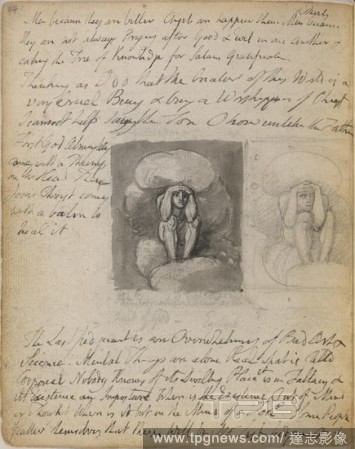 94
Men because they are better Angels are happier than Men & Devils because
they are not always Prying after Good & Evil in one Another &
eating the Tree of Knowledge for Satans Gratification
Thinking as I do that the Creator of this World is a
very Cruel Being & being a Worshipper of Christ
I cannot help saying the Son O how unlike the Father
First God Almighty
comes with a Thump
on the Head Then
Jesus Christ comes
with a balm to
heal it
The Last Judgment is an Overwhelming of Bad Art &
Science. Mental Things are alone Real what is Calld
Corporeal Nobody Knows of its Dwelling Place it is in Fallacy &
its Existence an Imposture Where is the Existence Out of Mind
or Thought Where is it but in the Mind of a Fool. Some People
flatter themselves that there will be No Last
TPG
www.tpgnews.com/達志影像